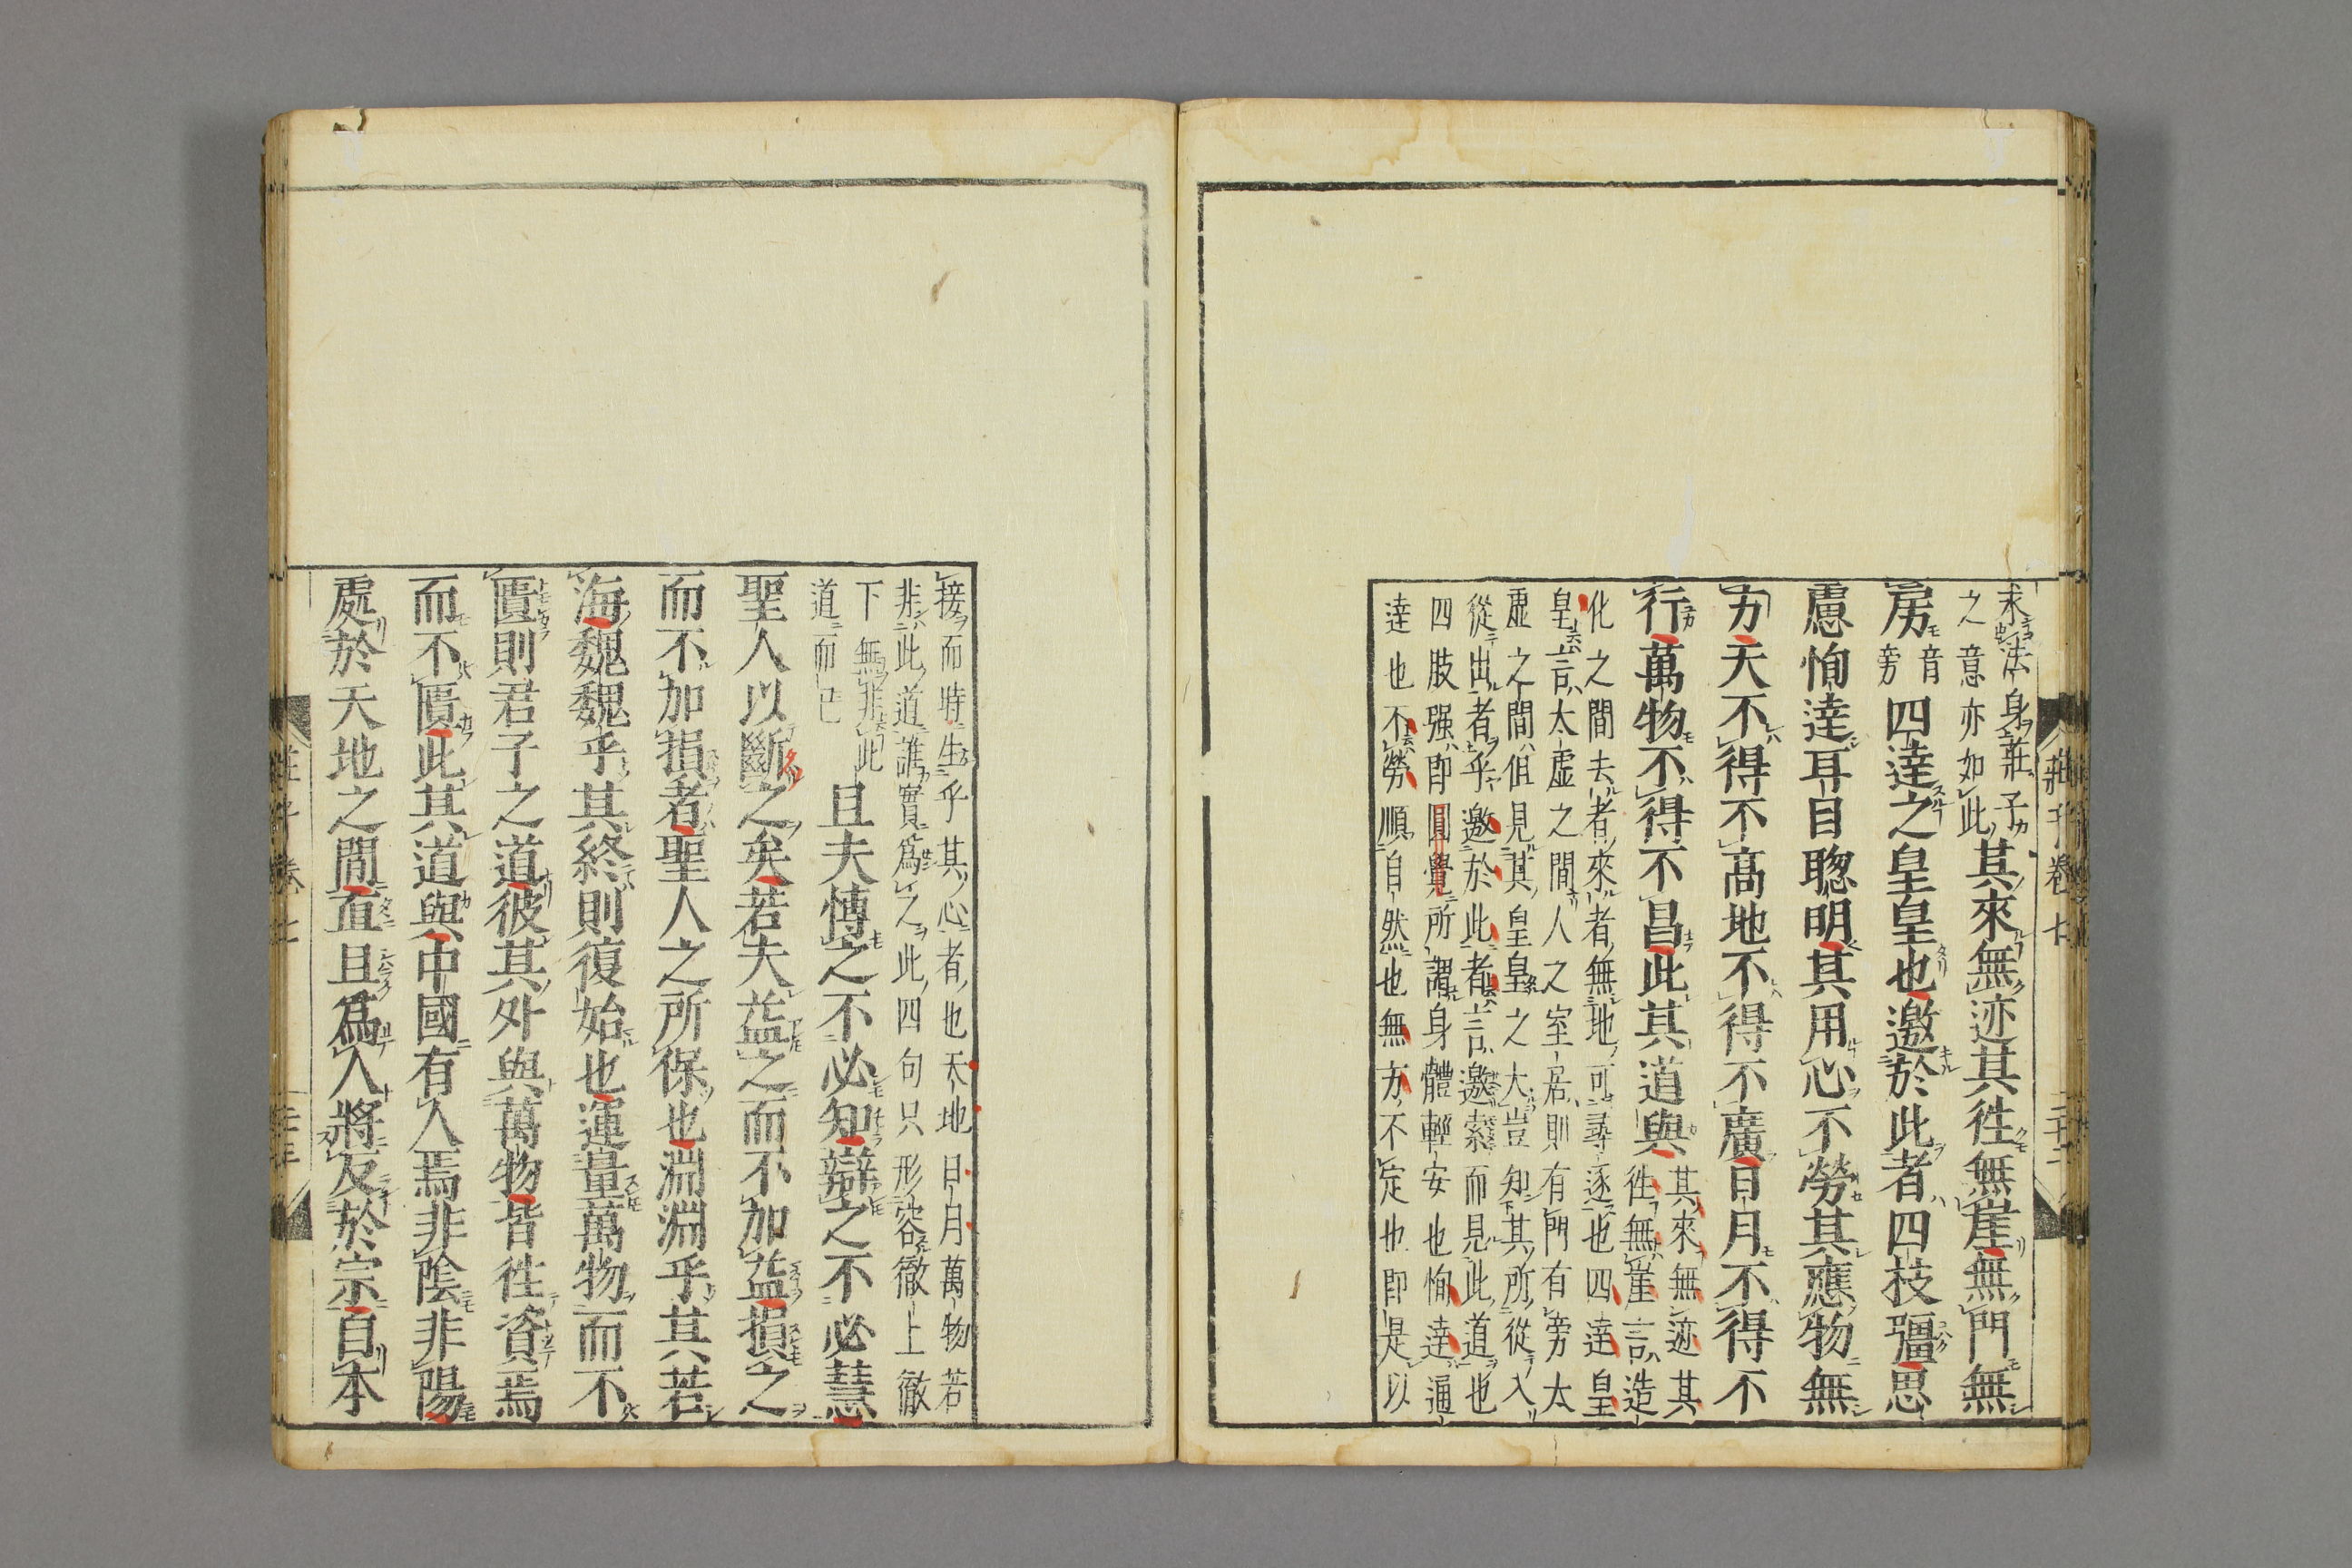 求法身莊子
之意亦如此其來無迹其徃無崖無門無
房音旁四達之皇皇也邀於此者四枝彊思
慮恂達耳目聦明其用心不勞其應物無
方天不得不高地不得不廣日月不得不
行萬物不得不昌此其道與其來無迹其
徃無崖言造
化之間去者來者無地可尋逐也四達皇
皇言太虚之間人之室居則有門有旁太
虚之間但見其皇皇之大豈知其所從入
從出者乎邀於此者言邀索而見此道也
四肢强即圓覺所謂身體輕安也恂達通
達也不勞順自然也無方不定也即是以
莊子卷七
接而時生乎其心者也天地日月萬物若
非此道誰實爲之此四句只形容徹上徹
下無非此
道而已且夫博之不必知辯之不必慧
聖人以斷之矣若夫益之而不加益損之
而不加損者聖人之所保也淵淵乎其若
海魏魏乎其終則復始也運量萬物而不
匱則君子之道彼其外與萬物皆徃資焉
而不匱此其道與中國有人焉非陰非陽
處於天地之間直且爲人將反於宗自本